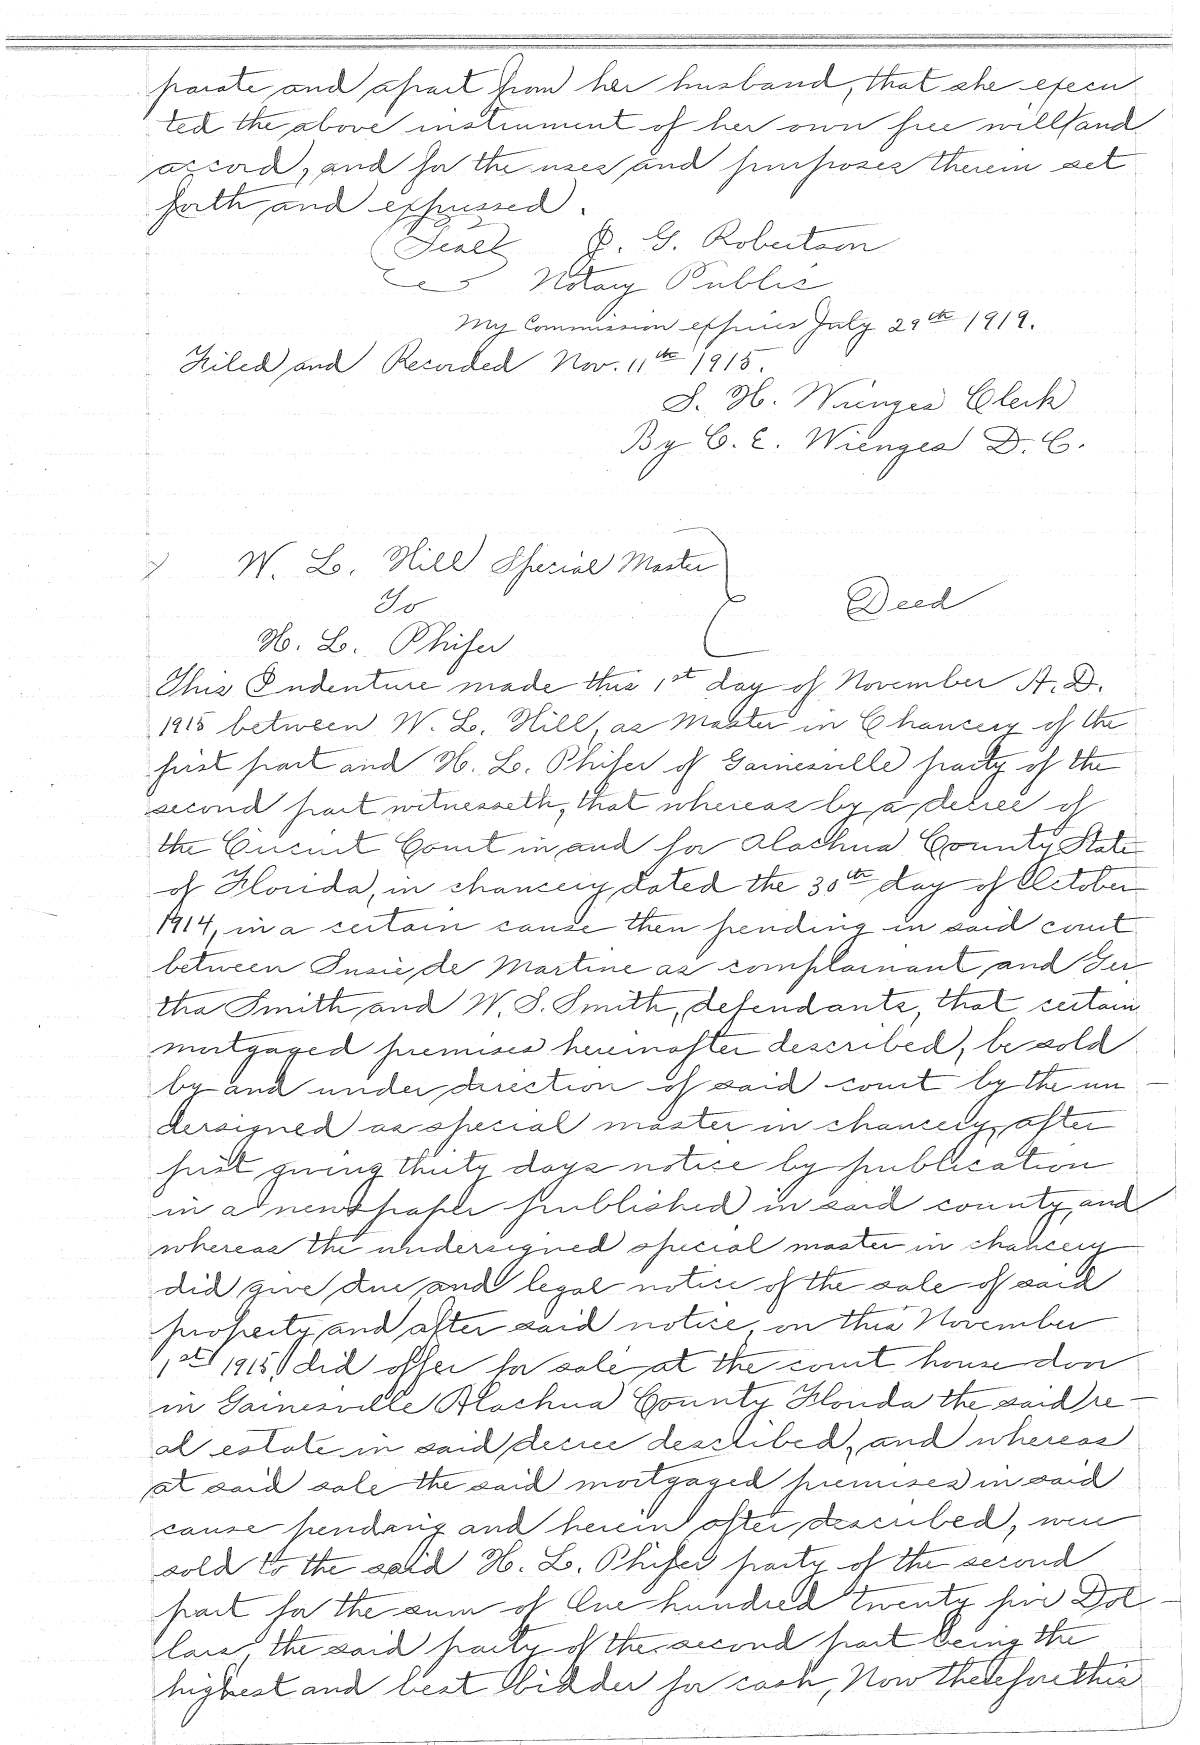 parate and apart from her husband, that she execu
ted the above instrument of her own free will and
accord, and for the uses and purposes therein set
forth and expressed.
(Seal) J. G. Robertson
Notary Public
My Commission expires July 29th 1919.
Filed and Recorded Nov. 11th 1915.
S. H. Wienges Clerk
By C. E. Wienges D. C.
W. L. Hill Special Master
To
H. L. Phifer
Deed
This Indenture made this 1st day of November A. D.
1915 between W. L. Hill, as Master in Chancery of the
first part and H. L. Phifer of Gainesville party of the
second part witnesseth, that whereas by a decree of
the Circuit Court in and for Alachua County State
of Florida, in chancery dated the 30th day of October
1914, in a certain cause then pending in said court
between Susie de Martine as complainant and Ger
tha Smith and W. S. Smith, defendants, that certain
mortgaged premises hereinafter described, be sold
by and under direction of said court by the un-
dersigned as special master in chancery, after
first giving thirty days notice by publication
in a newspaper published in said county, and
whereas the undersigned special master in chancery
did give due and legal notice of the sale of said
property and after said notice, on this November
1st 1915, did offer for sale at the court house door
in Gainesville Alachua County Florida the said re-
al estate in said decree described, and whereas
at said sale the said mortgaged premises in said
cause pending and herein after described, were
sold to the said H. L. Phifer party of the second
part for the sum of One hundred twenty five Dol-
lars, the said party of the second part being the
highest and best bidder for cash, Now therefore this